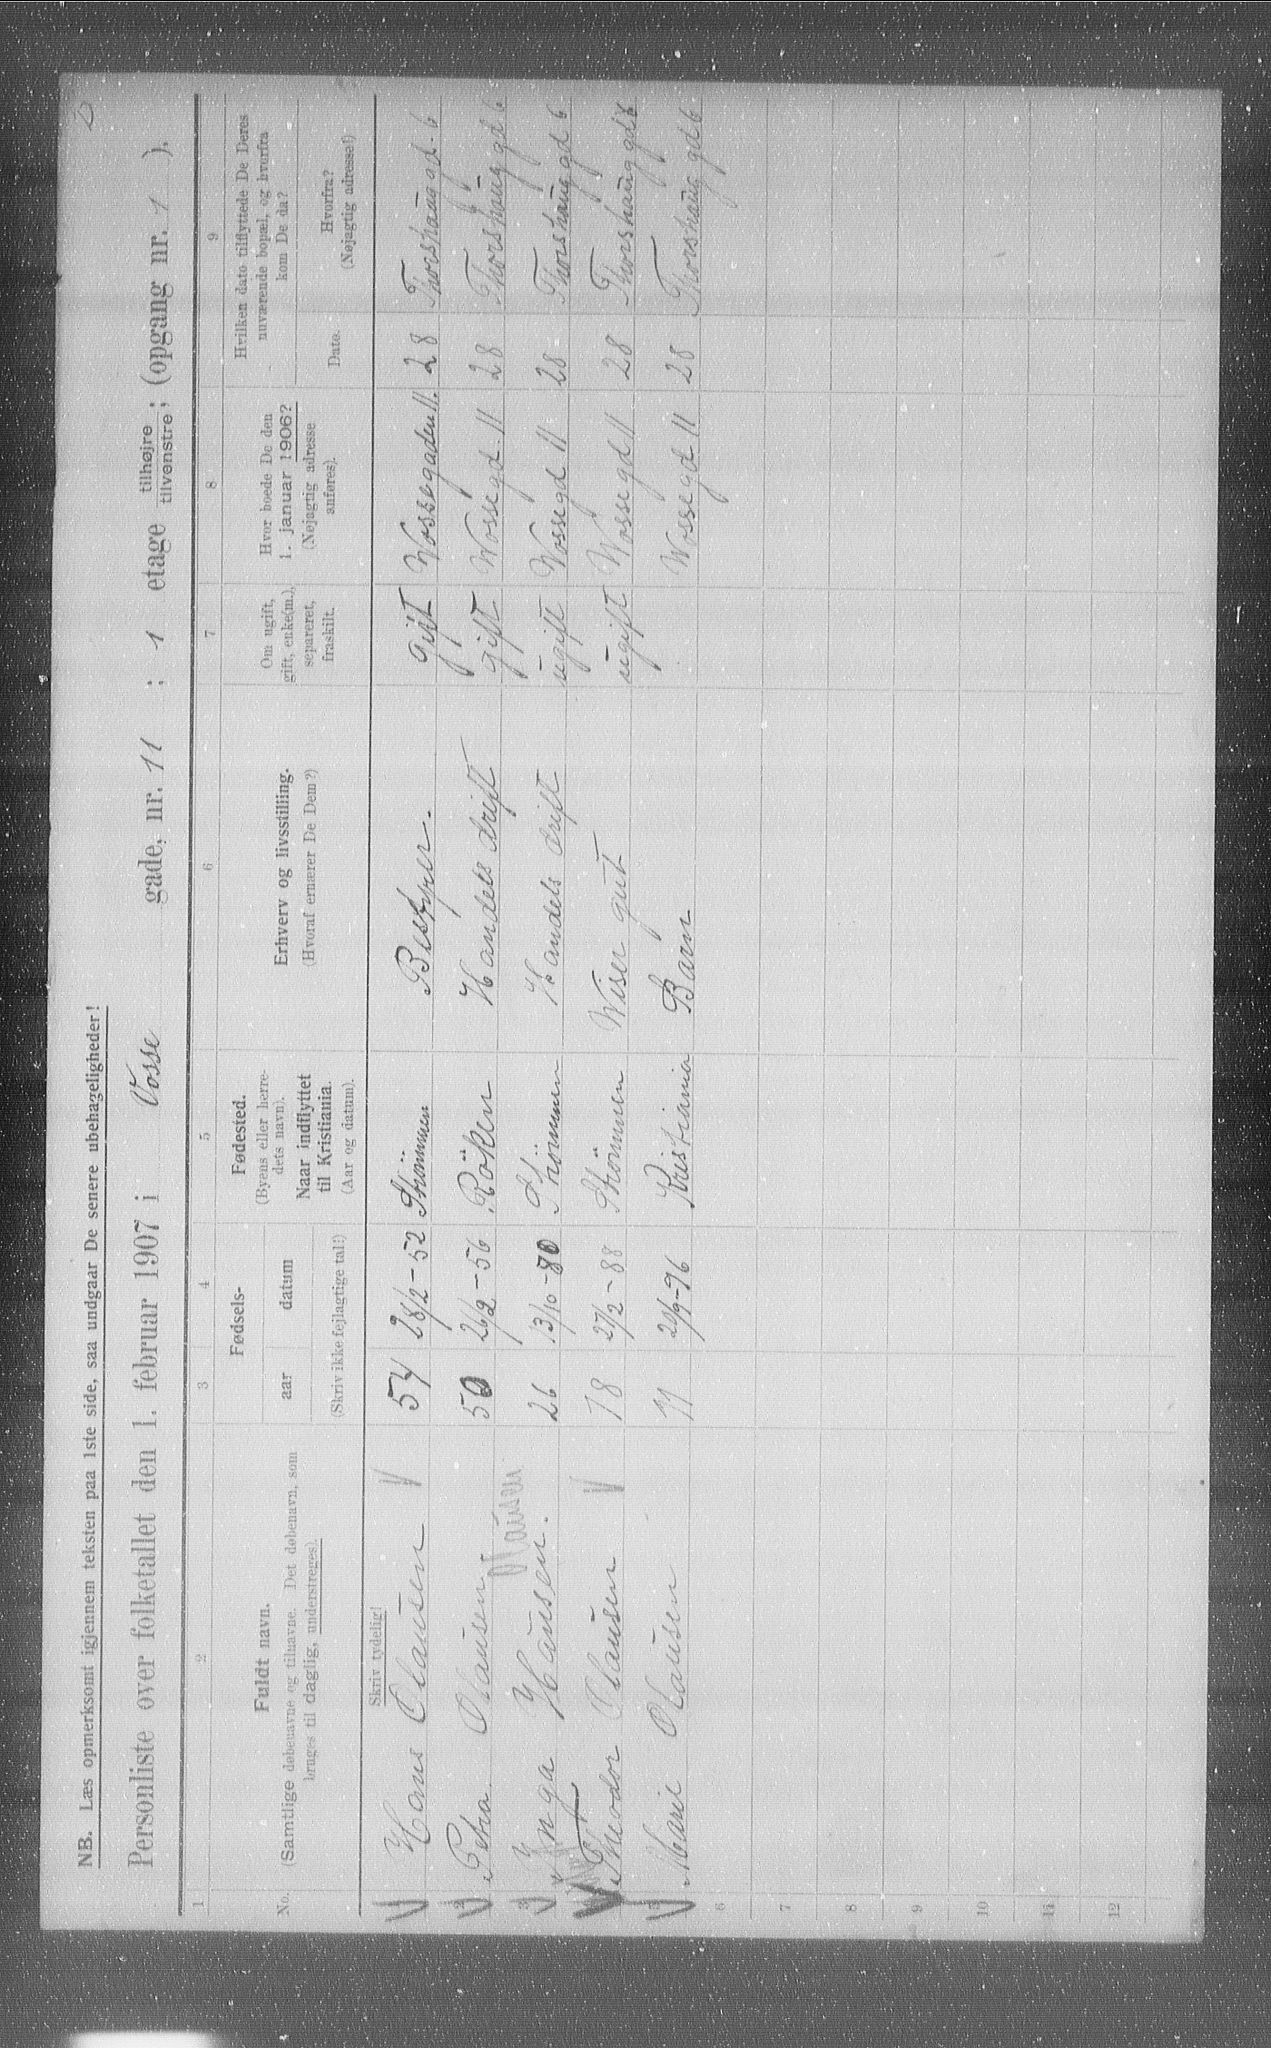 NB. Læs opmerksomt igjennem teksten paa 1ste side, saa undgaar De senere ubehageligheder!
Personliste over folketallet den 1. februar 1907 i Vosse gade, nr. 11 ; 1 etage tilhøjre tilvenstre; (opgang nr. 1 ).
1 2 3 4 5 6 7 8 9
No.
Fuldt navn.
(Samtlige døbenavne og tilnavne. Det døbenavn, som
bruges til daglig, understreges).
Fødsels-
aar datum
(Skriv ikke fejlagtige tal!)
Fødested.
(Byens eller herre-
dets navn).
Naar indflyttet
til Kristiania.
(Aar og datum).
Erhverv og livsstilling.
(Hvoraf ernærer De Dem?)
Om ugift,
gift, enke(m.),
separeret,
fraskilt.
Hvor boede De den
1. januar 1906?
(Nøjagtig adresse
anføres).
Hvilken dato tilflyttede De Deres
nuværende bopæl, og hvorfra
kom De da?
Date.
Hvorfra?
(Nøjagtig adresse!)
Skriv tydelig!
1 Hans Olausen 54 28/2-52 Strömmen Bestyrer. gift Vossegaden 11. 28 Thorshauggd. 6
2 Petra Olausen 50 26/2-56 Röken Handels drift gift Vossegd. 11 28 Thorshauggd 6
3 Inga Hansen. 26 13/10-80 Strömmen Handels drift ugift Vossegd. 11 28 Thorshauggd 6
4 Theodor Olausen 18 27/2-88 Strömmen Wisergut ugift Vossegd 11 28 Thorshauggd 6
5 Marie Olausen 11 24/9-96 Kristiania Barn Vossegd 11 28 Thorshauggd 6
6
7
8
9
10
11
12